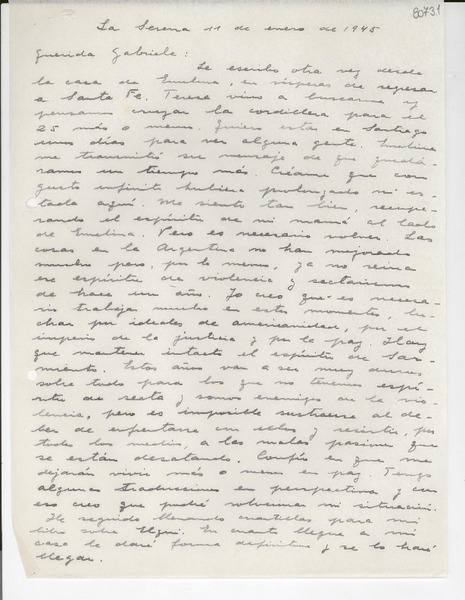 80731
La Serena 11 de enero de 1945
Querida Gabriela:
Le escribo otra vez desde
la casa de Emelina, en vísperas de regresar
a Santa Fe. Teresa vino a buscarme y
pensamos cruzar la cordillera para el
25 más o menos. Quiero estar en Santiago
unos días para ver alguna gente. Emelina
me transmitió su mensaje de que quedá-
ramos un tiempo más. Créame que con
gusto infinito hubiera prolongado mi es-
tada aquí. Me siento tan bien, recupe-
rando el espíritu de mi mamá al lado
de Emelina. Pero es necesario volver. Las
cosas en la Argentina no han mejorado
mucho pero, por lo menos, ya no reina
ese espíritu de violencia y sectarismo
de hace un año. Yo creo que es necesa-
rio trabajar mucho en estos momentos, lu-
char por ideales de americanidad, por el
imperio de la justicia y por la paz. Hay
que mantener intacto el espíritu de Sar-
miento. Estos años van a ser muy duros
sobre todo para los que no tenemos espí-
ritu de secta y somos enemigos de la vio-
lencia, pero es imposible sustraerse al de-
ber de enfrentarse con ellos y resistir, por
todos los medios, a las malas pasiones que
se están desatando. Confío en que me
dejarán vivir más o menos en paz. Tengo
algunas traducciones en perspectiva y con
eso creo que podré solucionar mi situación.
He seguido llenando cuartillas para mi
libro sobre Elqui. En cuanto llegue a mi
casa le daré forma definitiva y se lo haré
llegar.